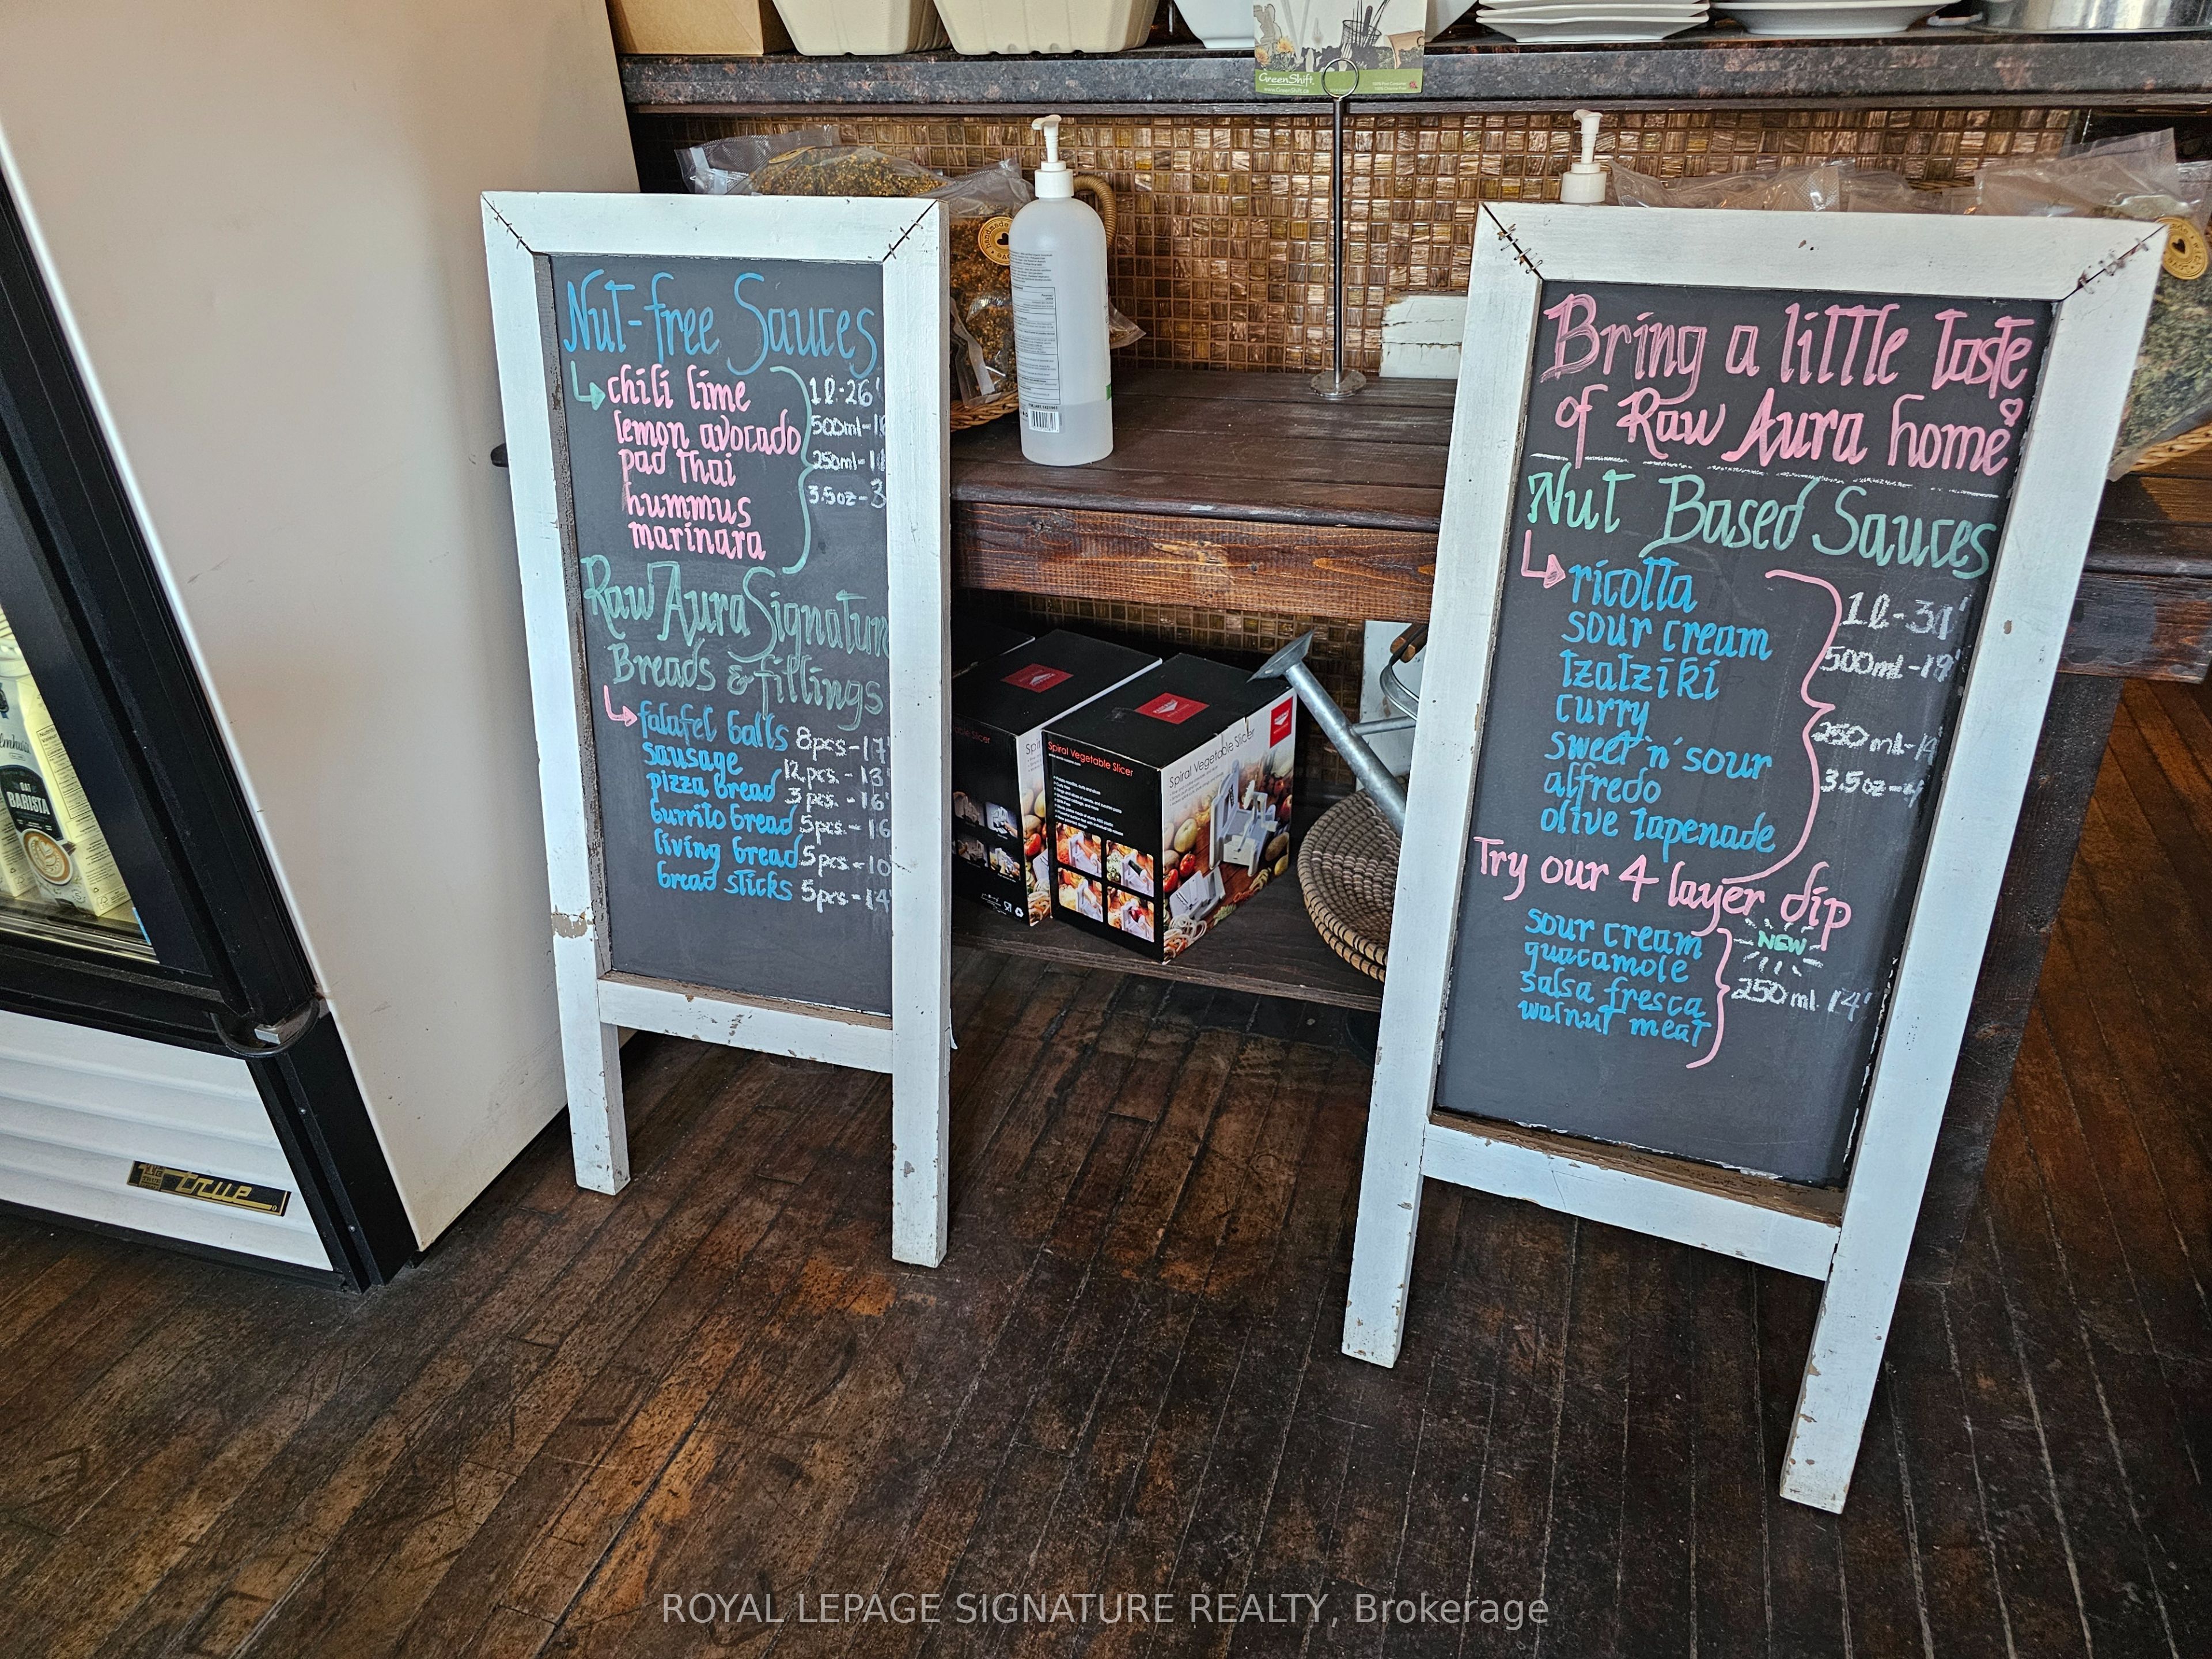 GreenShift
www.GreenShift.ca
Nut-free Sauces
chili lime
lemon avocado
pad thai
hummus
marinara
1l-26
500ml-
250ml-
3.5oz-3
Raw Aura Signature
Breads & fillings
falafel balls 8pcs-17
sausage 12pcs.-13
pizza bread 3pcs.-16
burrito bread 5pcs-16
living bread 5pcs-10
bread sticks 5pcs-14
Bring a little taste
of Raw Aura home
Nut Based Sauces
ricotta
sour cream
tzatziki
curry
sweet 'n' sour
alfredo
olive tapenade
1l-
500ml-19
250ml-
3.5oz-
Try our 4 layer dip
NEW
sour cream
guacamole
salsa fresca
walnut meat
250ml 14
Spiral Vegetable Slicer
Spiral Vegetable Slicer
BARISTA
true
ROYAL LEPAGE SIGNATURE REALTY, Brokerage